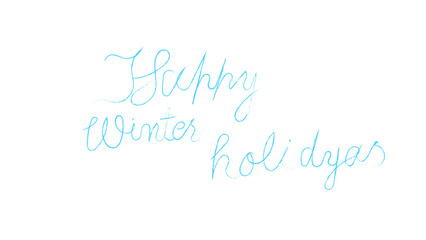 Happy
Winter
holidyas